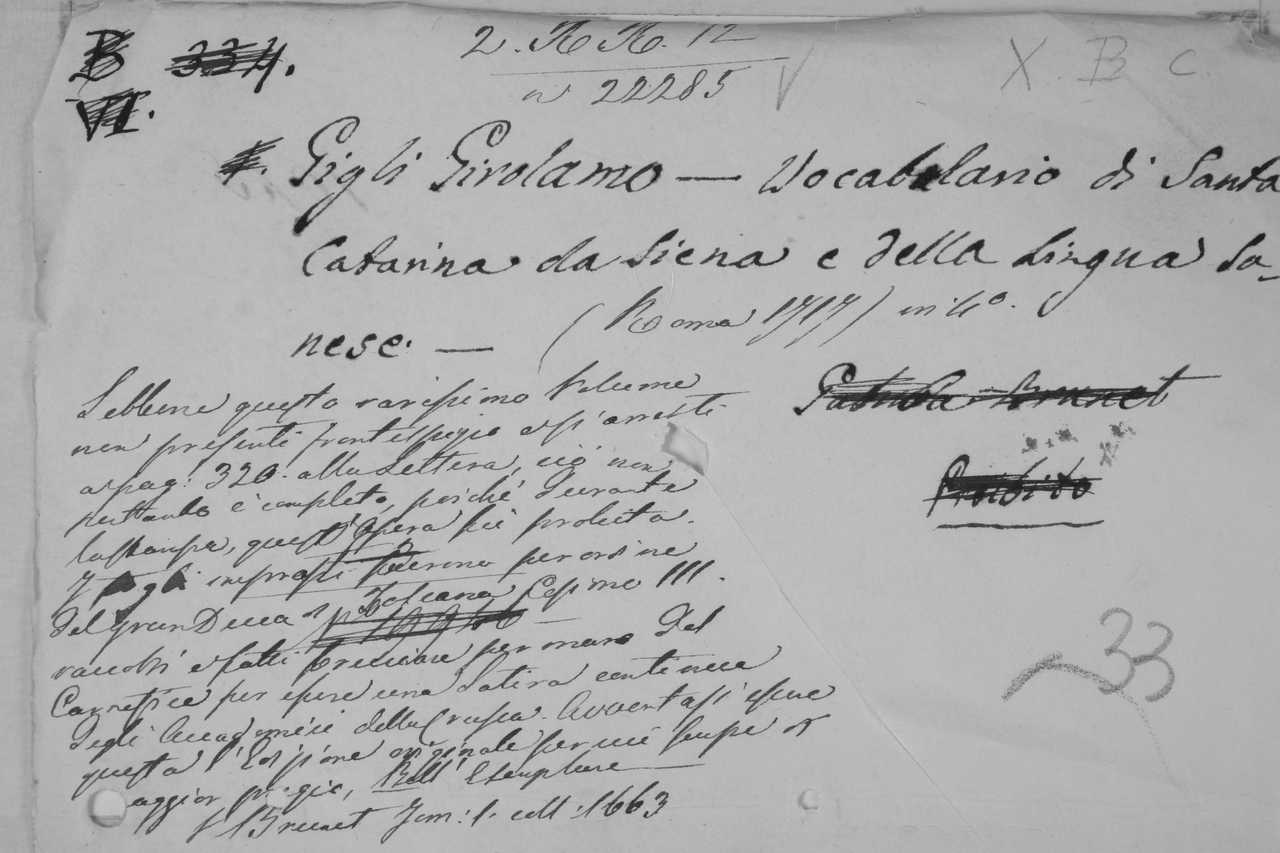 B 334.
VI.
2. K K. 12
n 22285
X. B c.
Gigli Girolamo — Vocabolario di Santa
Catarina da Siena e della Lingua Sa-
nese. —
(Roma 1717) in 4º.
Sebbene questo rarissimo Volume
non presenti frontespizio e si arresti
a pag: 320. alla Lettera, ciò non
pertanto è completo, poiché durante
la stampa, quest'Opera fù proibita.
I fogli impressi furono per ordine
del GranDuca di Toscana Cosimo III.
raccolti e fatti bruciare per mano del
Carnefice per essere una Satira continua
degli Accademici della Crusca. Avvertasi essere
questa l'Edizione originale per ciò sempre di
maggior pregio, Bell'Esemplare —
Brunet Tom: 1. coll: 1663
Proibito
33